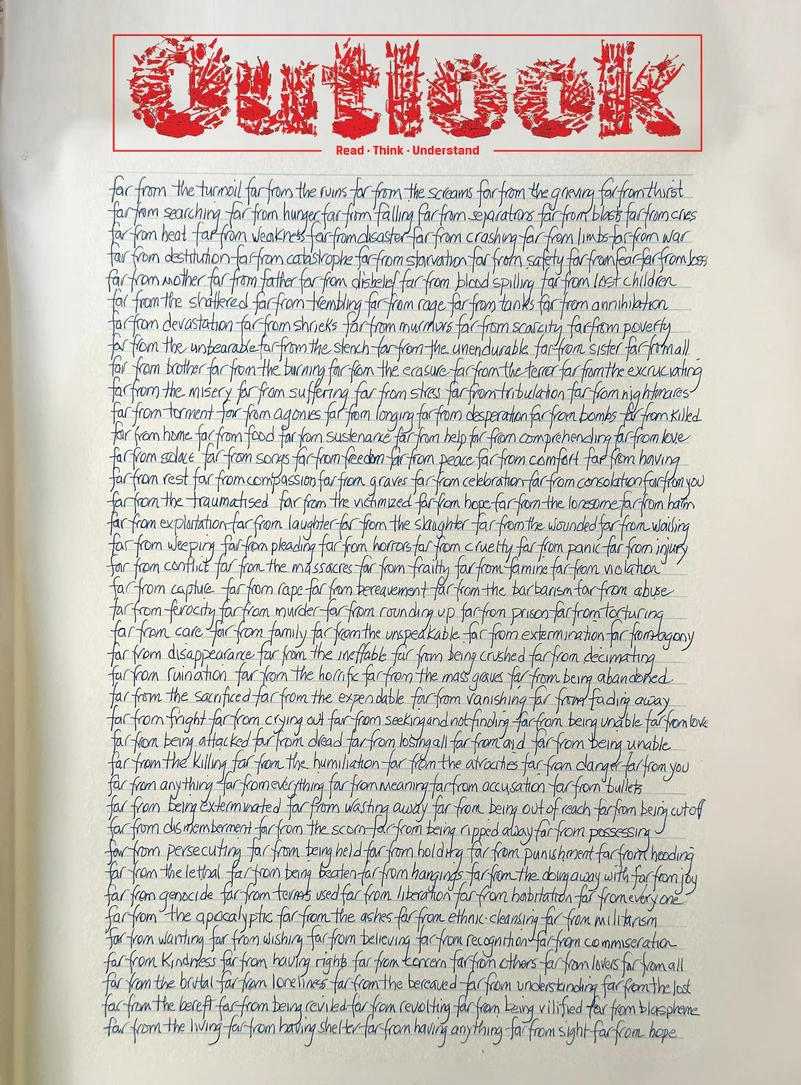 Outlook
Read · Think · Understand
far from the turmoil far from the ruins far from the screams far from the grieving far from thirst
far from searching far from hunger far from falling far from separations far from blasts far from cries
far from heat far from weakness far from disaster far from crashing far from limbs far from war
far from destitution far from catastrophe far from starvation far from safety far from fear far from loss
far from mother far from father far from disbelief far from blood spilling far from lost children
far from the shattered far from trembling far from rage far from tanks far from annihilation
far from devastation far from shrieks far from murmurs far from scarcity far from poverty
far from the unbearable far from the stench far from the unendurable far from sister far from all
far from brother far from the burning far from the erasure far from the terror far from the excruciating
far from the misery far from suffering far from stress far from tribulation far from nightmares
far from torment far from agonies far from longing far from desperation far from bombs far from killed
far from home far from food far from sustenance far from help far from comprehending far from love
far from solace far from songs far from freedom far from peace far from comfort far from having
far from rest far from compassion far from graves far from celebration far from consolation far from you
far from the traumatised far from the victimized far from hope far from the lonesome far from harm
far from exploitation far from laughter far from the slaughter far from the wounded far from wailing
far from weeping far from pleading far from horrors far from cruelty far from panic far from injury
far from conflict far from the massacres far from frailty far from famine far from violation
far from capture far from rape far from bereavement far from the barbarism far from abuse
far from ferocity far from murder far from rounding up far from prison far from torturing
far from care far from family far from the unspeakable far from extermination far from agony
far from disappearance far from the ineffable far from being crushed far from decimating
far from ruination far from the horrific far from the mass graves far from being abandoned
far from the sacrificed far from the expendable far from vanishing far from fading away
far from fright far from crying out far from seeking and not finding far from being unable far from love
far from being attacked far from dread far from losing all far from and far from being unable
far from the killing far from the humiliation far from the atrocities far from danger far from you
far from anything far from everything far from meaning far from accusation far from bullets
far from being exterminated far from wasting away far from being out of reach far from being cut off
far from dismemberment far from the scorn far from being ripped away far from possessing
far from persecuting far from being held far from holding far from punishment far from heeding
far from the lethal far from being beaten far from hangings far from the doing away with far from joy
far from genocide far from terms used far from liberation far from habitation far from every one
far from the apocalyptic far from the ashes far from ethnic-cleansing far from militarism
far from wanting far from wishing far from believing far from recognition far from commiseration
far from kindness far from having rights far from concern far from others far from lovers far from all
far from the brutal far from loneliness far from the bereaved far from understanding far from the lost
far from the bereft far from being reviled far from revolting far from being vilified far from blaspheme
far from the living far from having shelter far from having anything far from sight far from hope